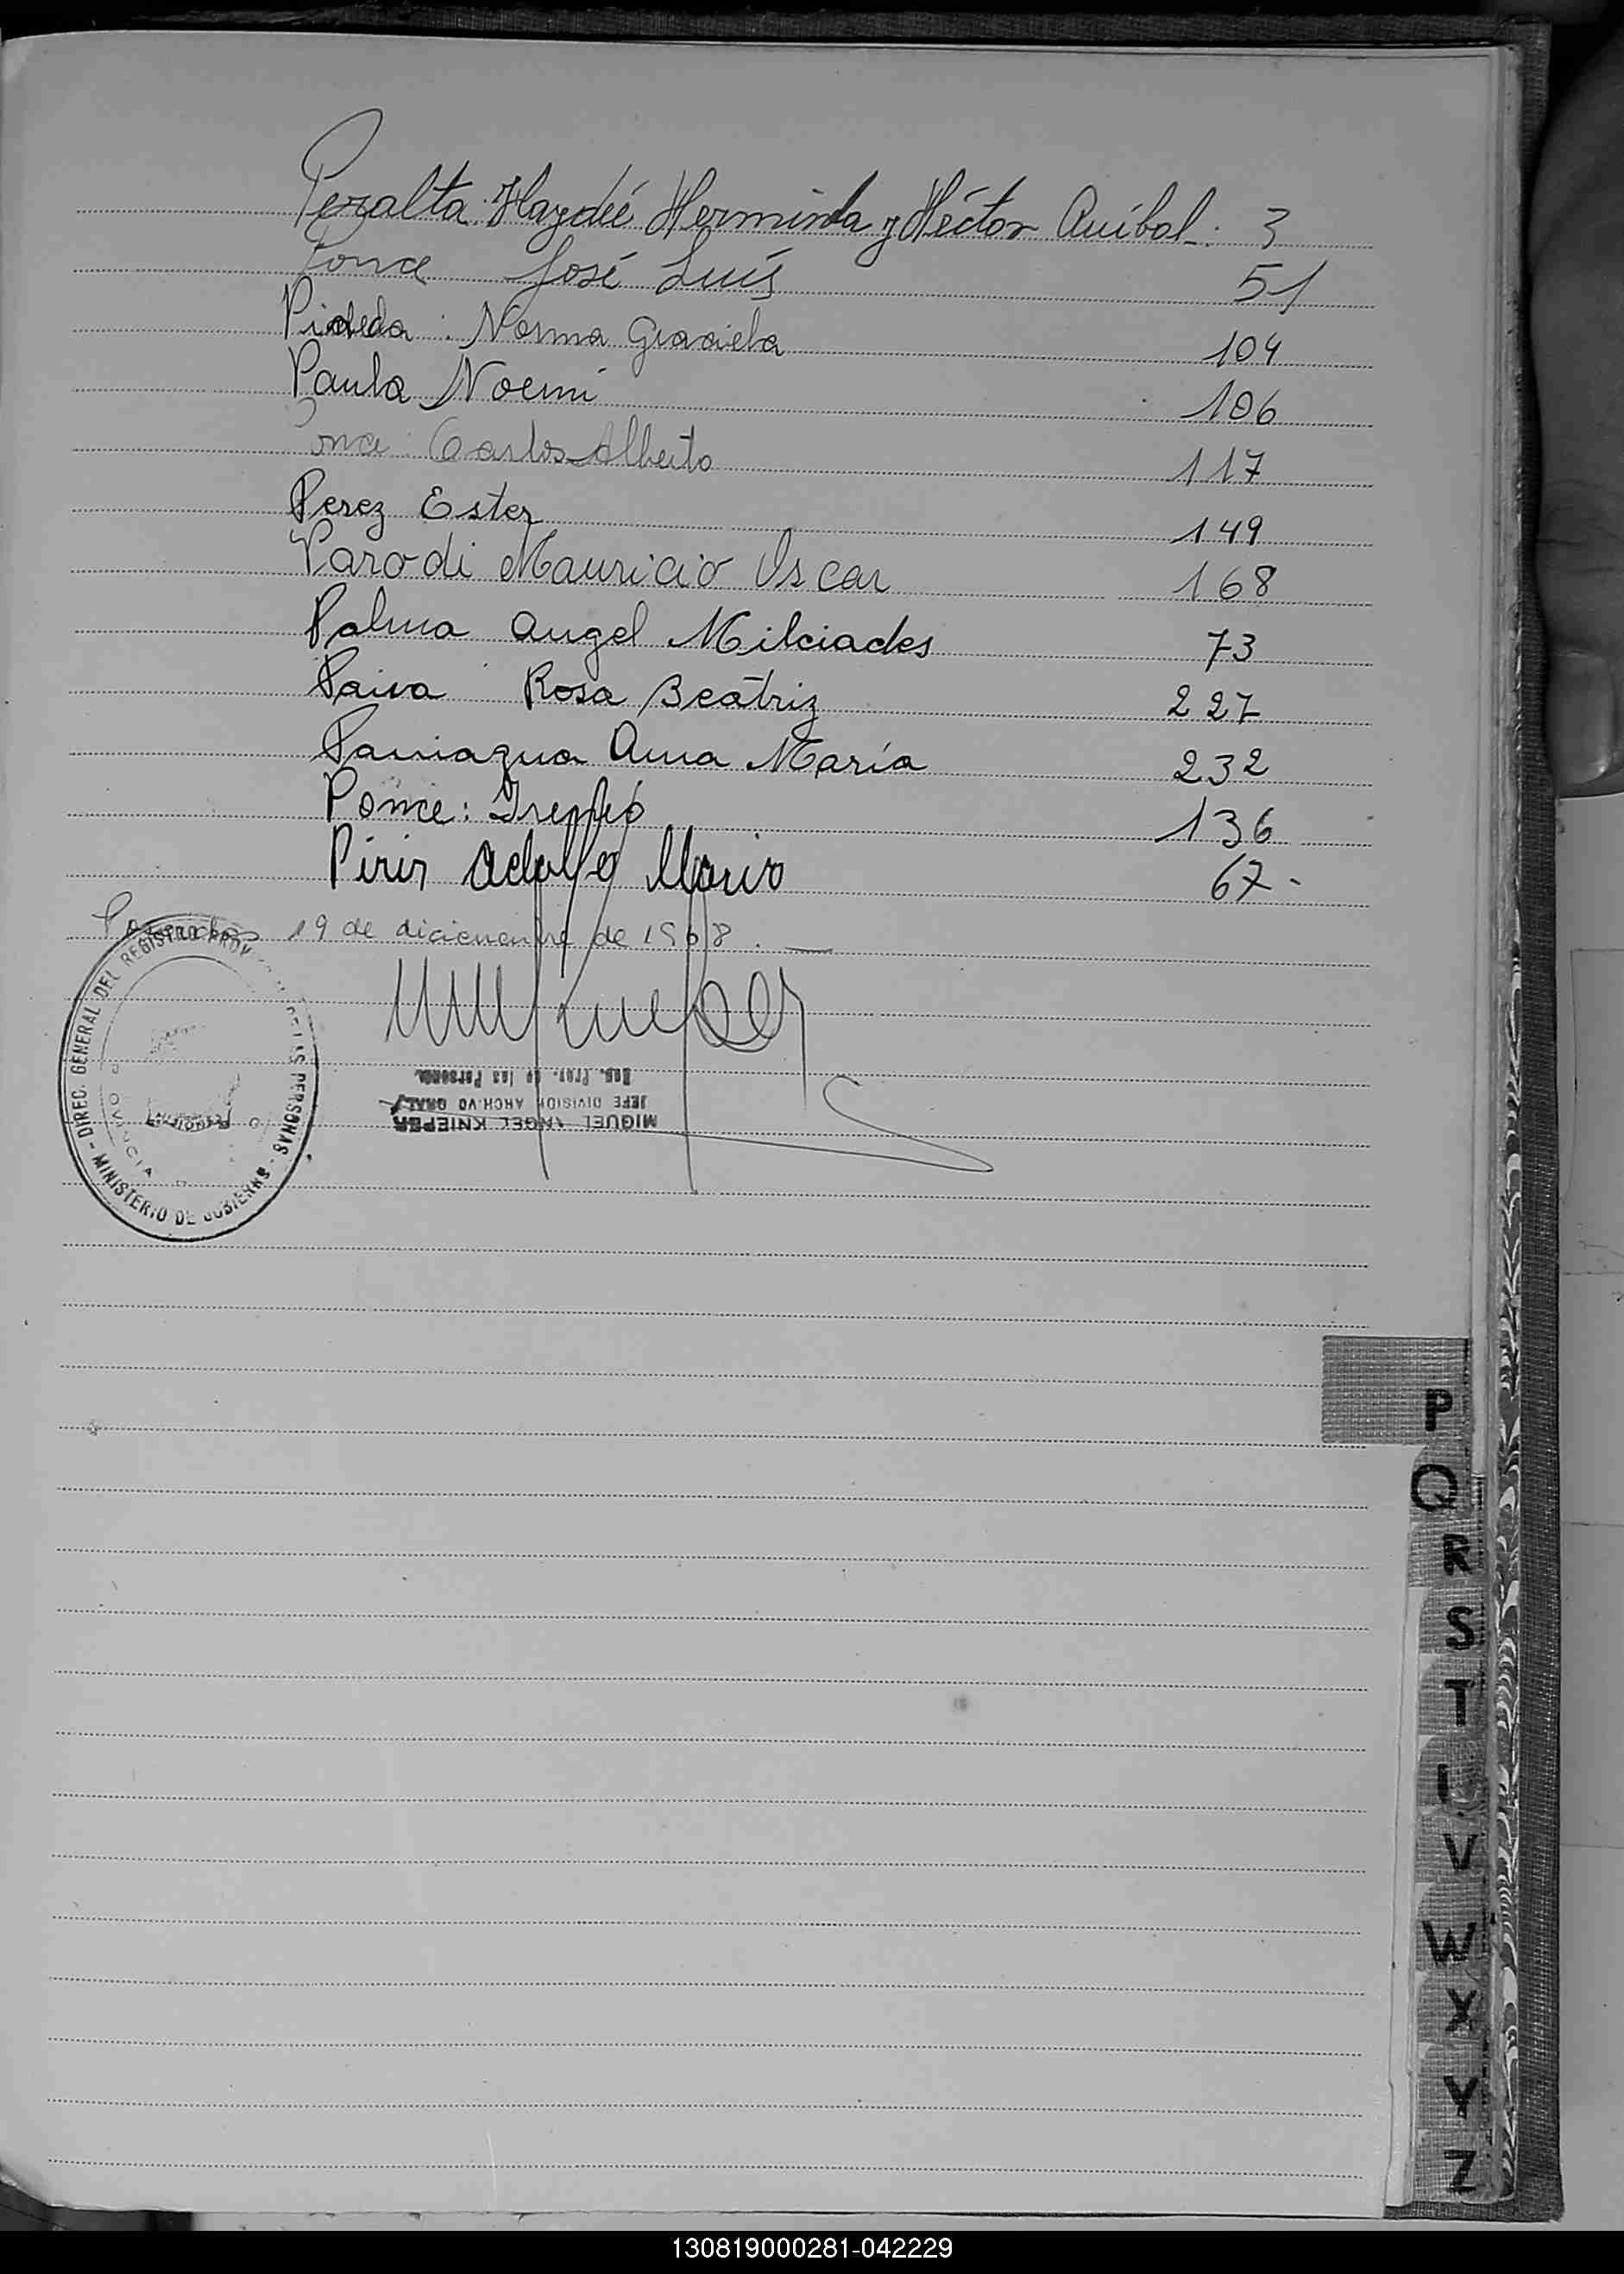 Peralta Haydeé Herminda y Héctor Aníbal. 3
Ponce José Luís 51
Pineda: Norma Graciela 104
Paula Noemi 106
Ponce: Carlos Alberto 117
Perez Ester 149
Parodi Mauricio Oscar 168
Palma Angel Milciades 73
Paiva Rosa Beatriz 227
Paniagua Ana María 232
Ponce: 136
Piris Adolfo Mario 67.-
19 de diciembre de 1968.
DIREC. GENERAL DEL REGISTRO PROV. DE LAS PERSONAS - MINISTERIO DE GOBIERNO -
PROVINCIA
MIGUEL ANGEL KNIEPER
JEFE DIVISION ARCHIVO GRAL.
Reg. Prov. de las Personas
P
Q
R
S
T
V
W
X
Y
Z
130819000281-042229